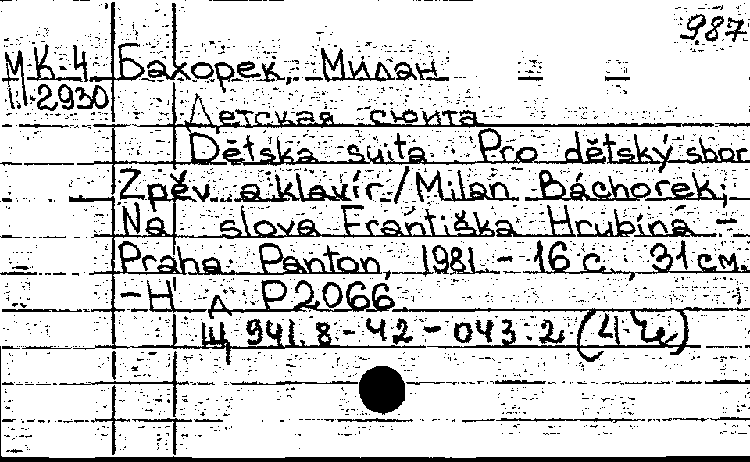 987
МК-4 Бахорек, Милан
11-2930
Детская сюита
Dětská suita. Pro dětský sbor
Zpěv a klavír / Milan Báchorek;
Na slova Františka Hrubína -
Praha: Panton, 1981 - 16 с.; 31 см.
-Н л P2066
Щ 941.8-42-043.2 (4 Че)